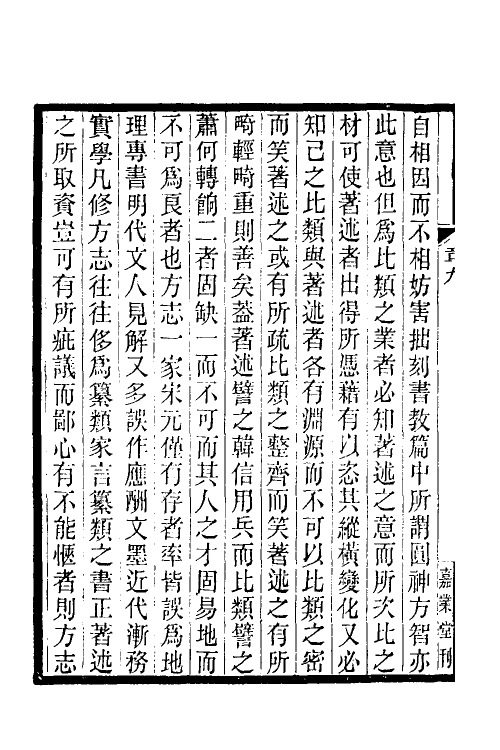 章九
嘉業堂刊
自相因而不相妨害拙刻書教篇中所謂圓神方智亦
此意也但爲比類之業者必知著述之意而所次比之
材可使著述者出得所憑藉有以恣其縱橫變化又必
知己之比類與著述者各有淵源而不可以比類之密
而笑著述之或有所疏比類之整齊而笑著述之有所
畸輕畸重則善矣葢著述譬之韓信用兵而比類譬之
蕭何轉餉二者固缺一而不可而其人之才固易地而
不可爲良者也方志一家宋元僅有存者率皆誤爲地
理專書明代文人見解又多誤作應酬文墨近代漸務
實學凡修方志往往侈爲纂類家言纂類之書正著述
之所取資豈可有所疵議而鄙心有不能愜者則方志